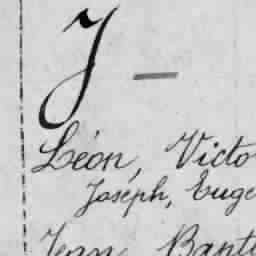 J —
Léon, Victo
Joséph, Euge
Jean Bapti